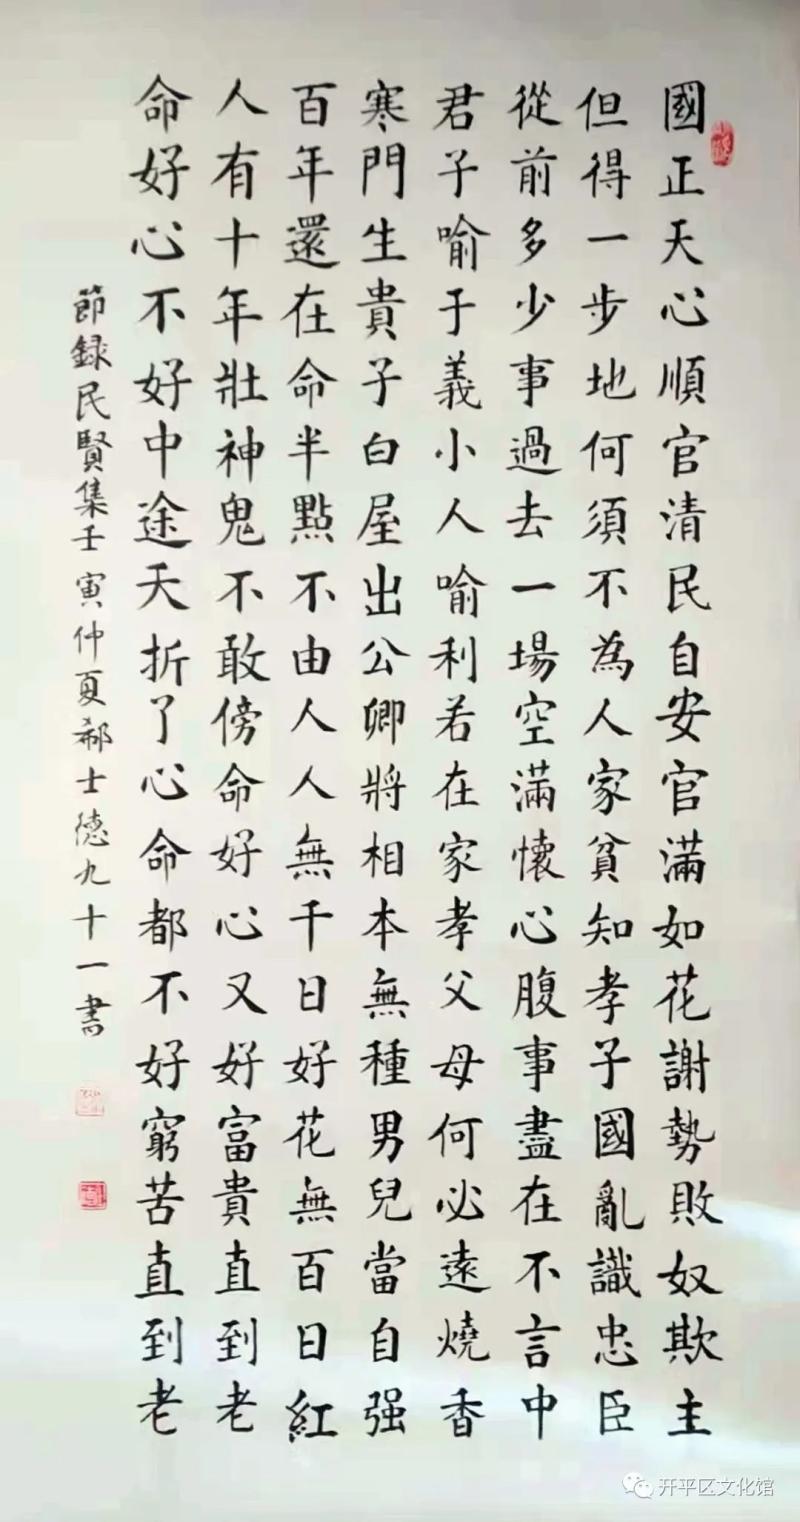 國正天心順官清民自安官滿如花謝勢敗奴欺主
但得一步地何須不為人家貧知孝子國亂識忠臣
從前多少事過去一場空滿懷心腹事盡在不言中
君子喻于義小人喻利若在家孝父母何必遠燒香
寒門生貴子白屋出公卿將相本無種男兒當自强
百年還在命半點不由人人無千日好花無百日紅
人有十年壯神鬼不敢傍命好心又好富貴直到老
命好心不好中途夭折了心命都不好窮苦直到老
節録民賢集壬寅仲夏郝士德九十一書
开平区文化馆